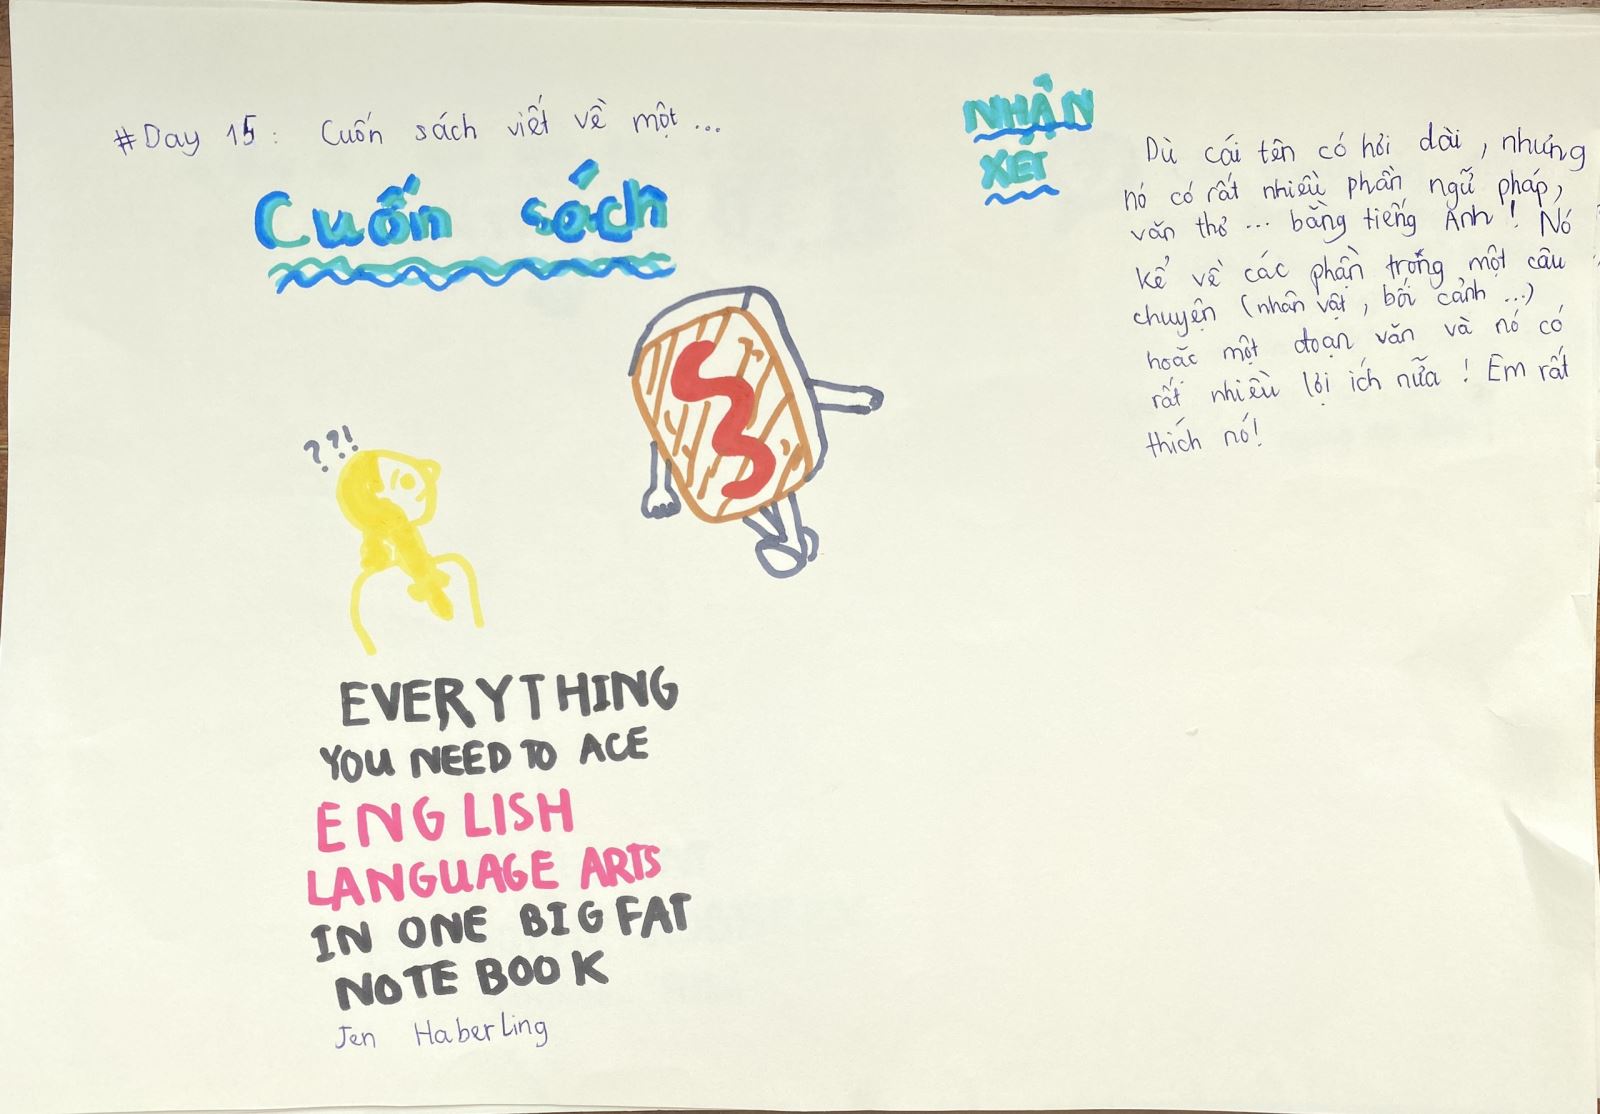 #Day 15: Cuốn sách viết về một ...
Cuốn sách
??!
EVERYTHING
YOU NEED TO ACE
ENGLISH
LANGUAGE ARTS
IN ONE BIG FAT
NOTE BOOK
Jen Haberling
NHẬN
XÉT
Dù cái tên có hơi dài, nhưng
nó có rất nhiều phần ngữ pháp,
văn thơ ... bằng tiếng Anh! Nó
kể về các phần trong một câu
chuyện (nhân vật, bối cảnh ...)
hoặc một đoạn văn và nó có
rất nhiều lợi ích nữa! Em rất
thích nó!